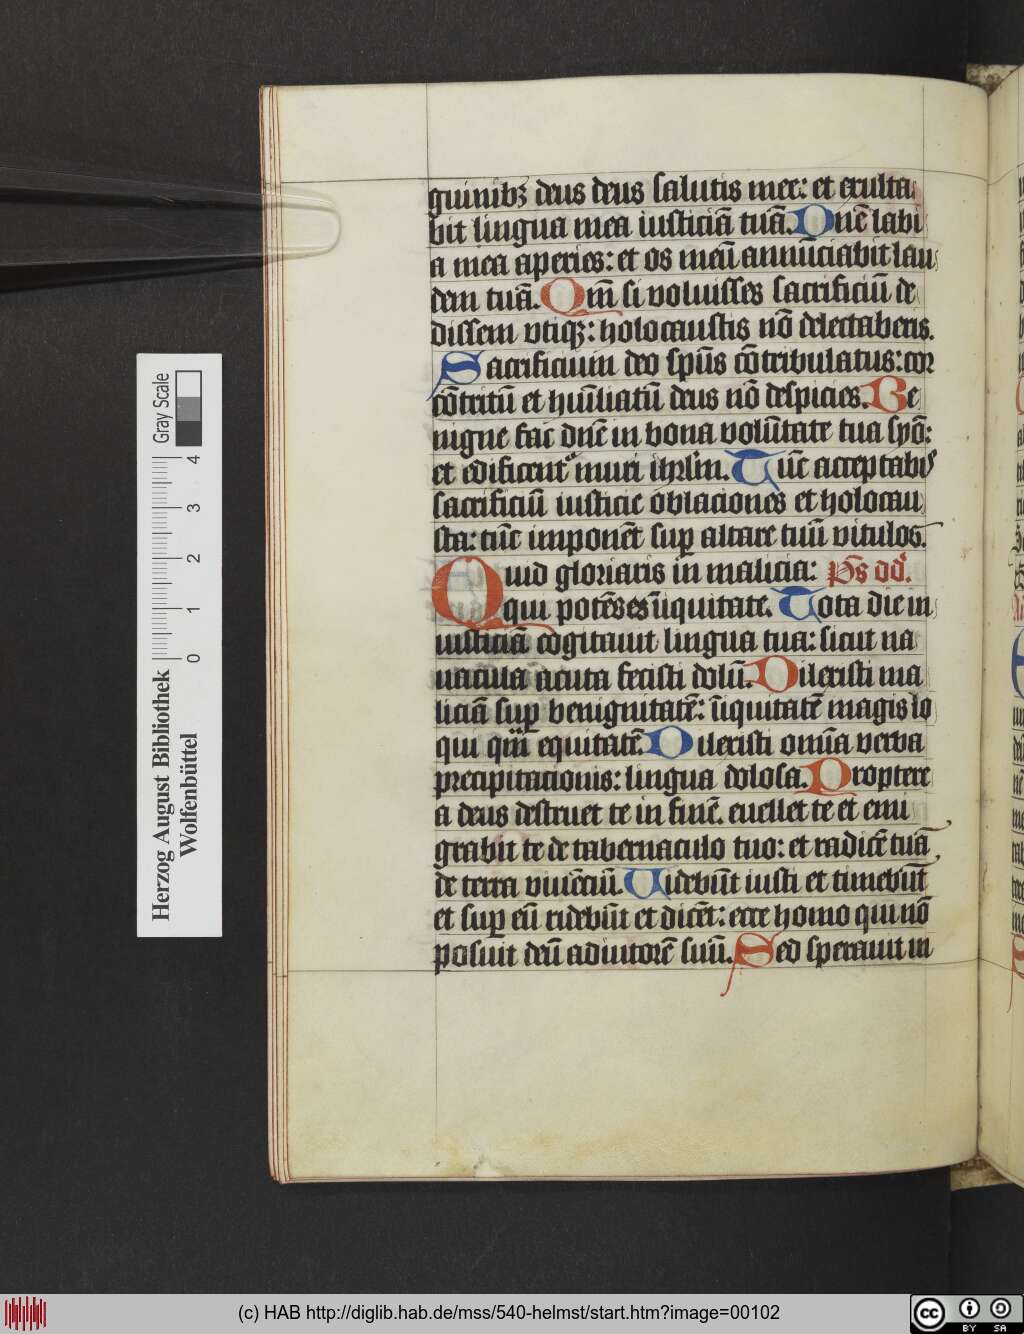 guinibꝫ deus deus salutis mee: et exulta
bit lingua mea iusticiā tuā. Dn̄e labi
a mea aperies: et os meū annūciabit lau
dem tuā. Qm̄ si voluisses sacrificiū de
dissem vtiqꝫ: holocaustis nō delectaberis.
Sacrificium deo sp̄us cōtribulatus: cor
cōtritū et hūiliatū deus nō despicies. Be
nigne fac dn̄e in bona volūtate tua syō:
et edificent᷑ muri ihrl̄m. Tūc acceptabis
sacrificiū iusticie oblaciones et holocau
sta: tūc imponēt suꝑ altare tuū vitulos.
Quid gloriaris in malicia: Ps̄ dd.
qui potēs es īiquitate. Tota die in
iusticiā cogitauit lingua tua: sicut na
uacula acuta fecisti dolū. Dilexisti ma
liciā suꝑ benignitatē: īiquitatē magis lo
qui qm̄ equitatē. Dilexisti omīa verba
precipitacionis: lingua dolosa. Proptere
a deus destruet te in finē. euellet te et emi
grabit te de tabernaculo tuo: et radicē tuā
de terra viuēciū. Uidebūt iusti et timebūt
et suꝑ eū ridebūt et dicēt: ecce homo qui nō
posuit deū adiutorē suū. Sed sperauit in
Herzog August Bibliothek
Wolfenbüttel
Gray Scale
0 1 2 3 4
(c) HAB http://diglib.hab.de/mss/540-helmst/start.htm?image=00102
cc BY SA